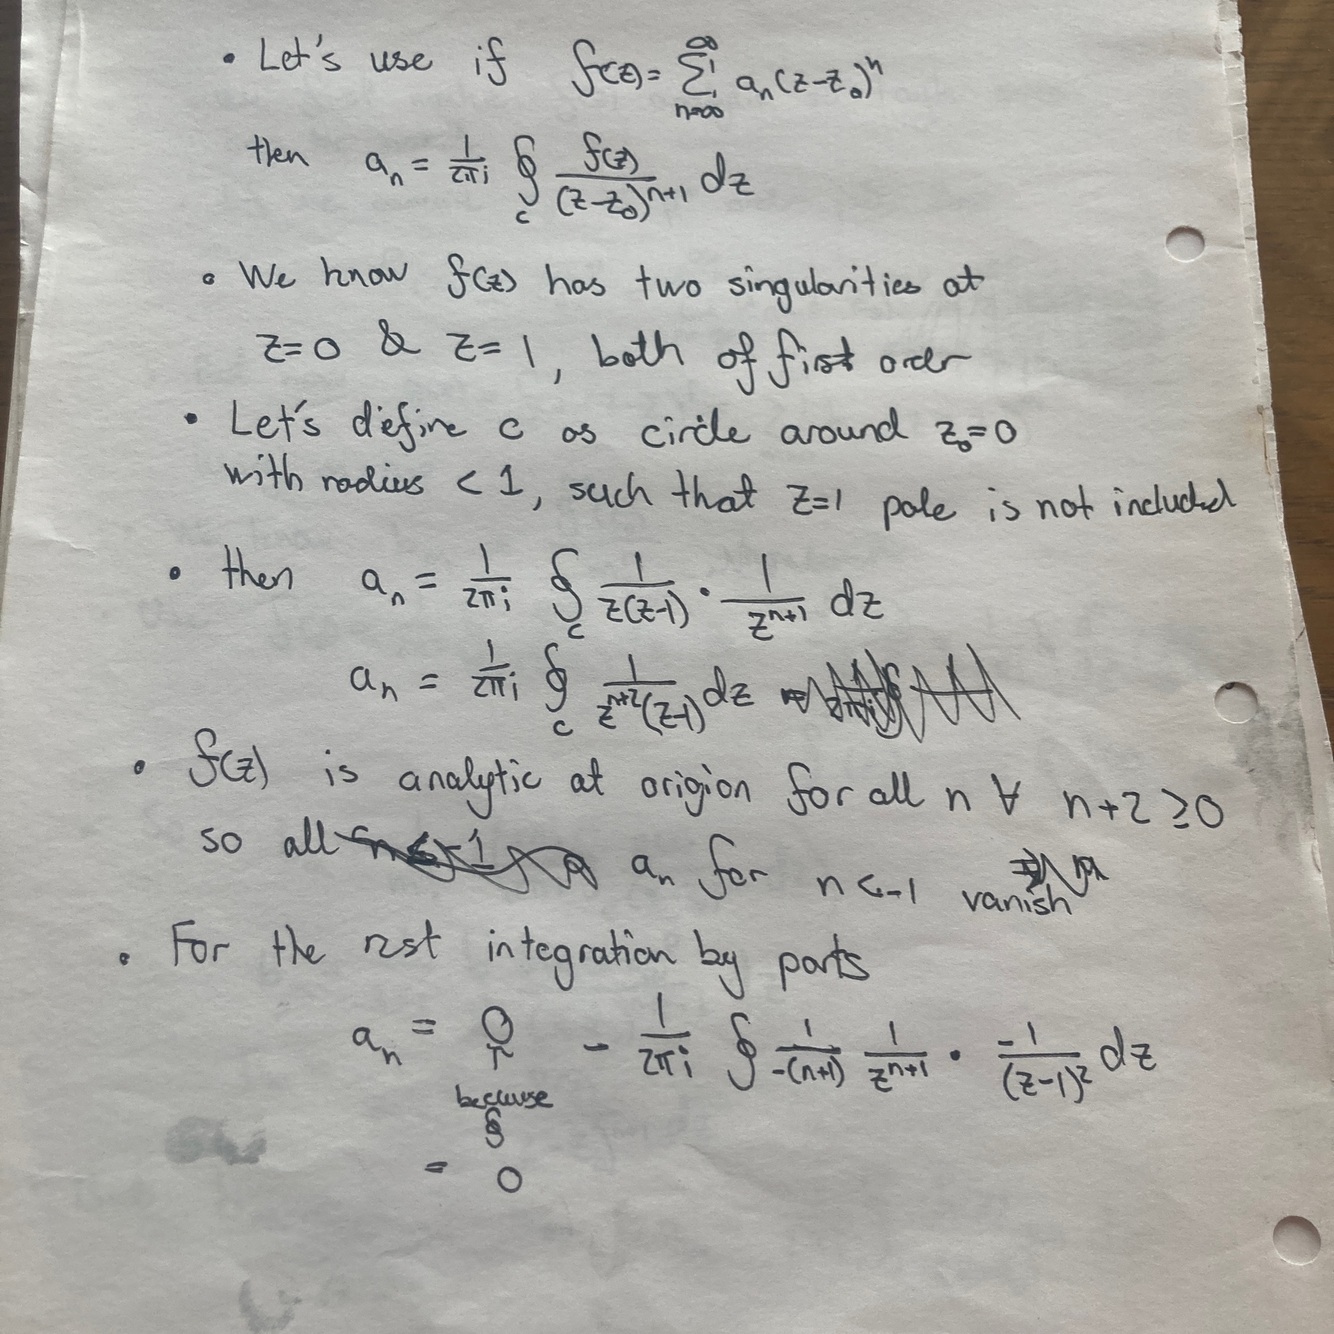 • Let's use if f(z) = ∑_{n=∞}^{∞} a_n (z-z_0)^n
then a_n = \frac{1}{2πi} ∮_c \frac{f(z)}{(z-z_0)^{n+1}} dz
• We know f(z) has two singularities at
z=0 & z=1, both of first order
• Let's define c as circle around z_0=0
with radius < 1, such that z=1 pole is not included
• then a_n = \frac{1}{2πi} ∮_c \frac{1}{z(z-1)} · \frac{1}{z^{n+1}} dz
a_n = \frac{1}{2πi} ∮_c \frac{1}{z^{n+2}(z-1)} dz
• f(z) is analytic at origion for all n ∀ n+2 ≥0
so all a_n for n<-1 vanish
• For the rest integration by parts
a_n = 0 - \frac{1}{2πi} ∮ \frac{1}{-(n+1)} \frac{1}{z^{n+1}} · \frac{-1}{(z-1)^2} dz
↑
because
∮
= 0